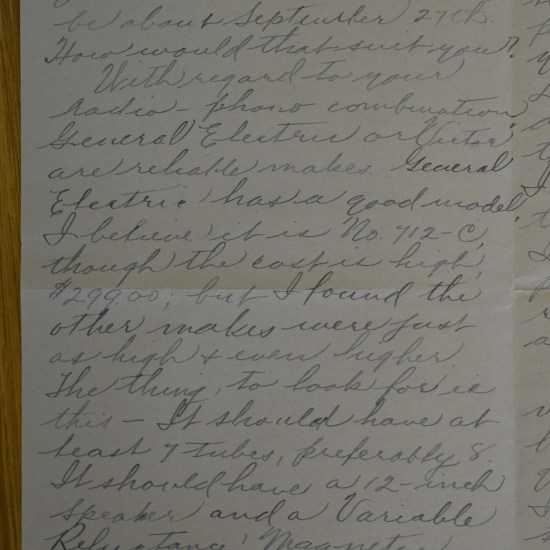 be about September 27th.
How would that suit you?
With regard to your
radio - phono combination,
General Electric or Victor
are reliable makes. General
Electric has a good model,
I believe it is No. 712-C,
though the cost is high,
$299.00; but I found the
other makes were just
as high & even higher.
The thing to look for is
this - It should have at
least 7 tubes, preferably 8.
It should have a 12-inch
speaker and a Variable
Reluctance Magnetic